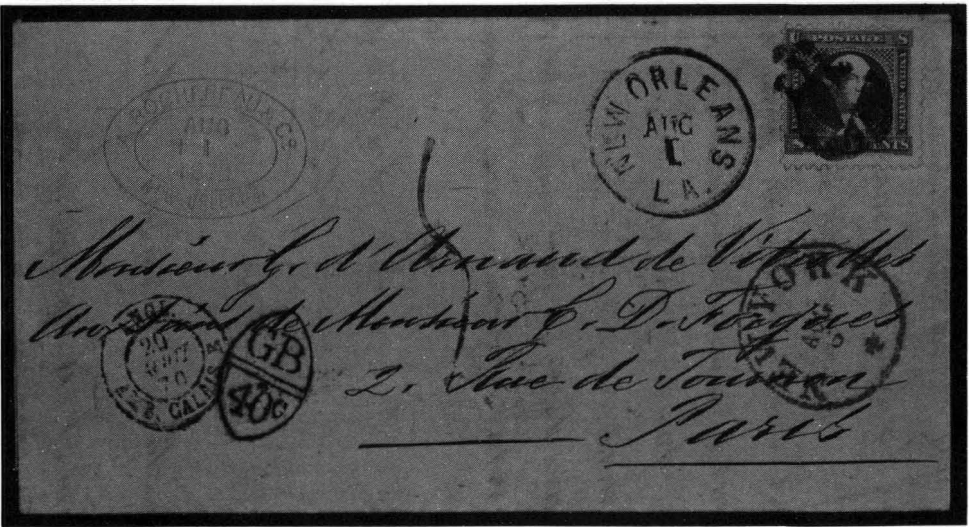 A. ROCHEREAU & Co
AUG
1
NEW ORLEANS
NEW ORLEANS
AUG
1
LA.
U S
POSTAGE
Monsieur G. d'Arnaud de Vitrolles
Aux soins de Monsieur C. D. Fargues
2. Rue de Tournon
Paris
NEW YORK
AUG
ANGL.
20
AOUT
70
AMB. CALAIS
GB
40c